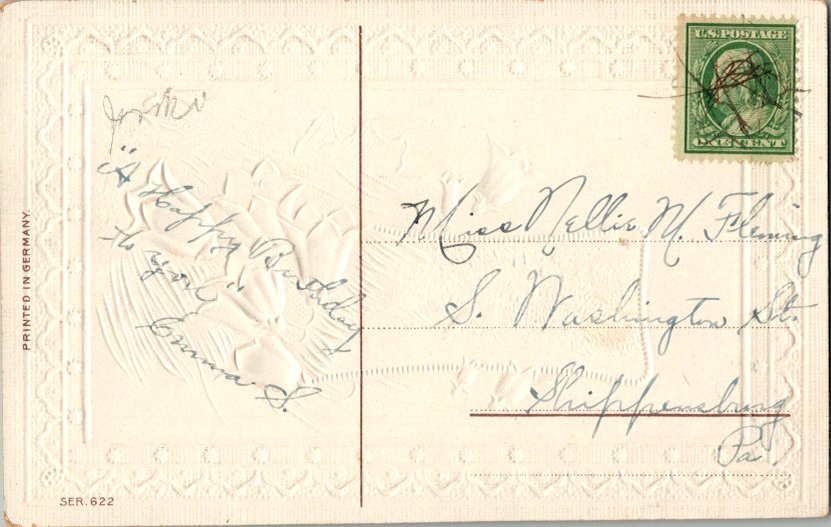 U.S. POSTAGE
ONE CENT
"A Happy Birthday
to you"
Emma S.
Miss Nellie M. Fleming
S. Washington St.
Shippensburg
Pa.
PRINTED IN GERMANY.
SER. 622